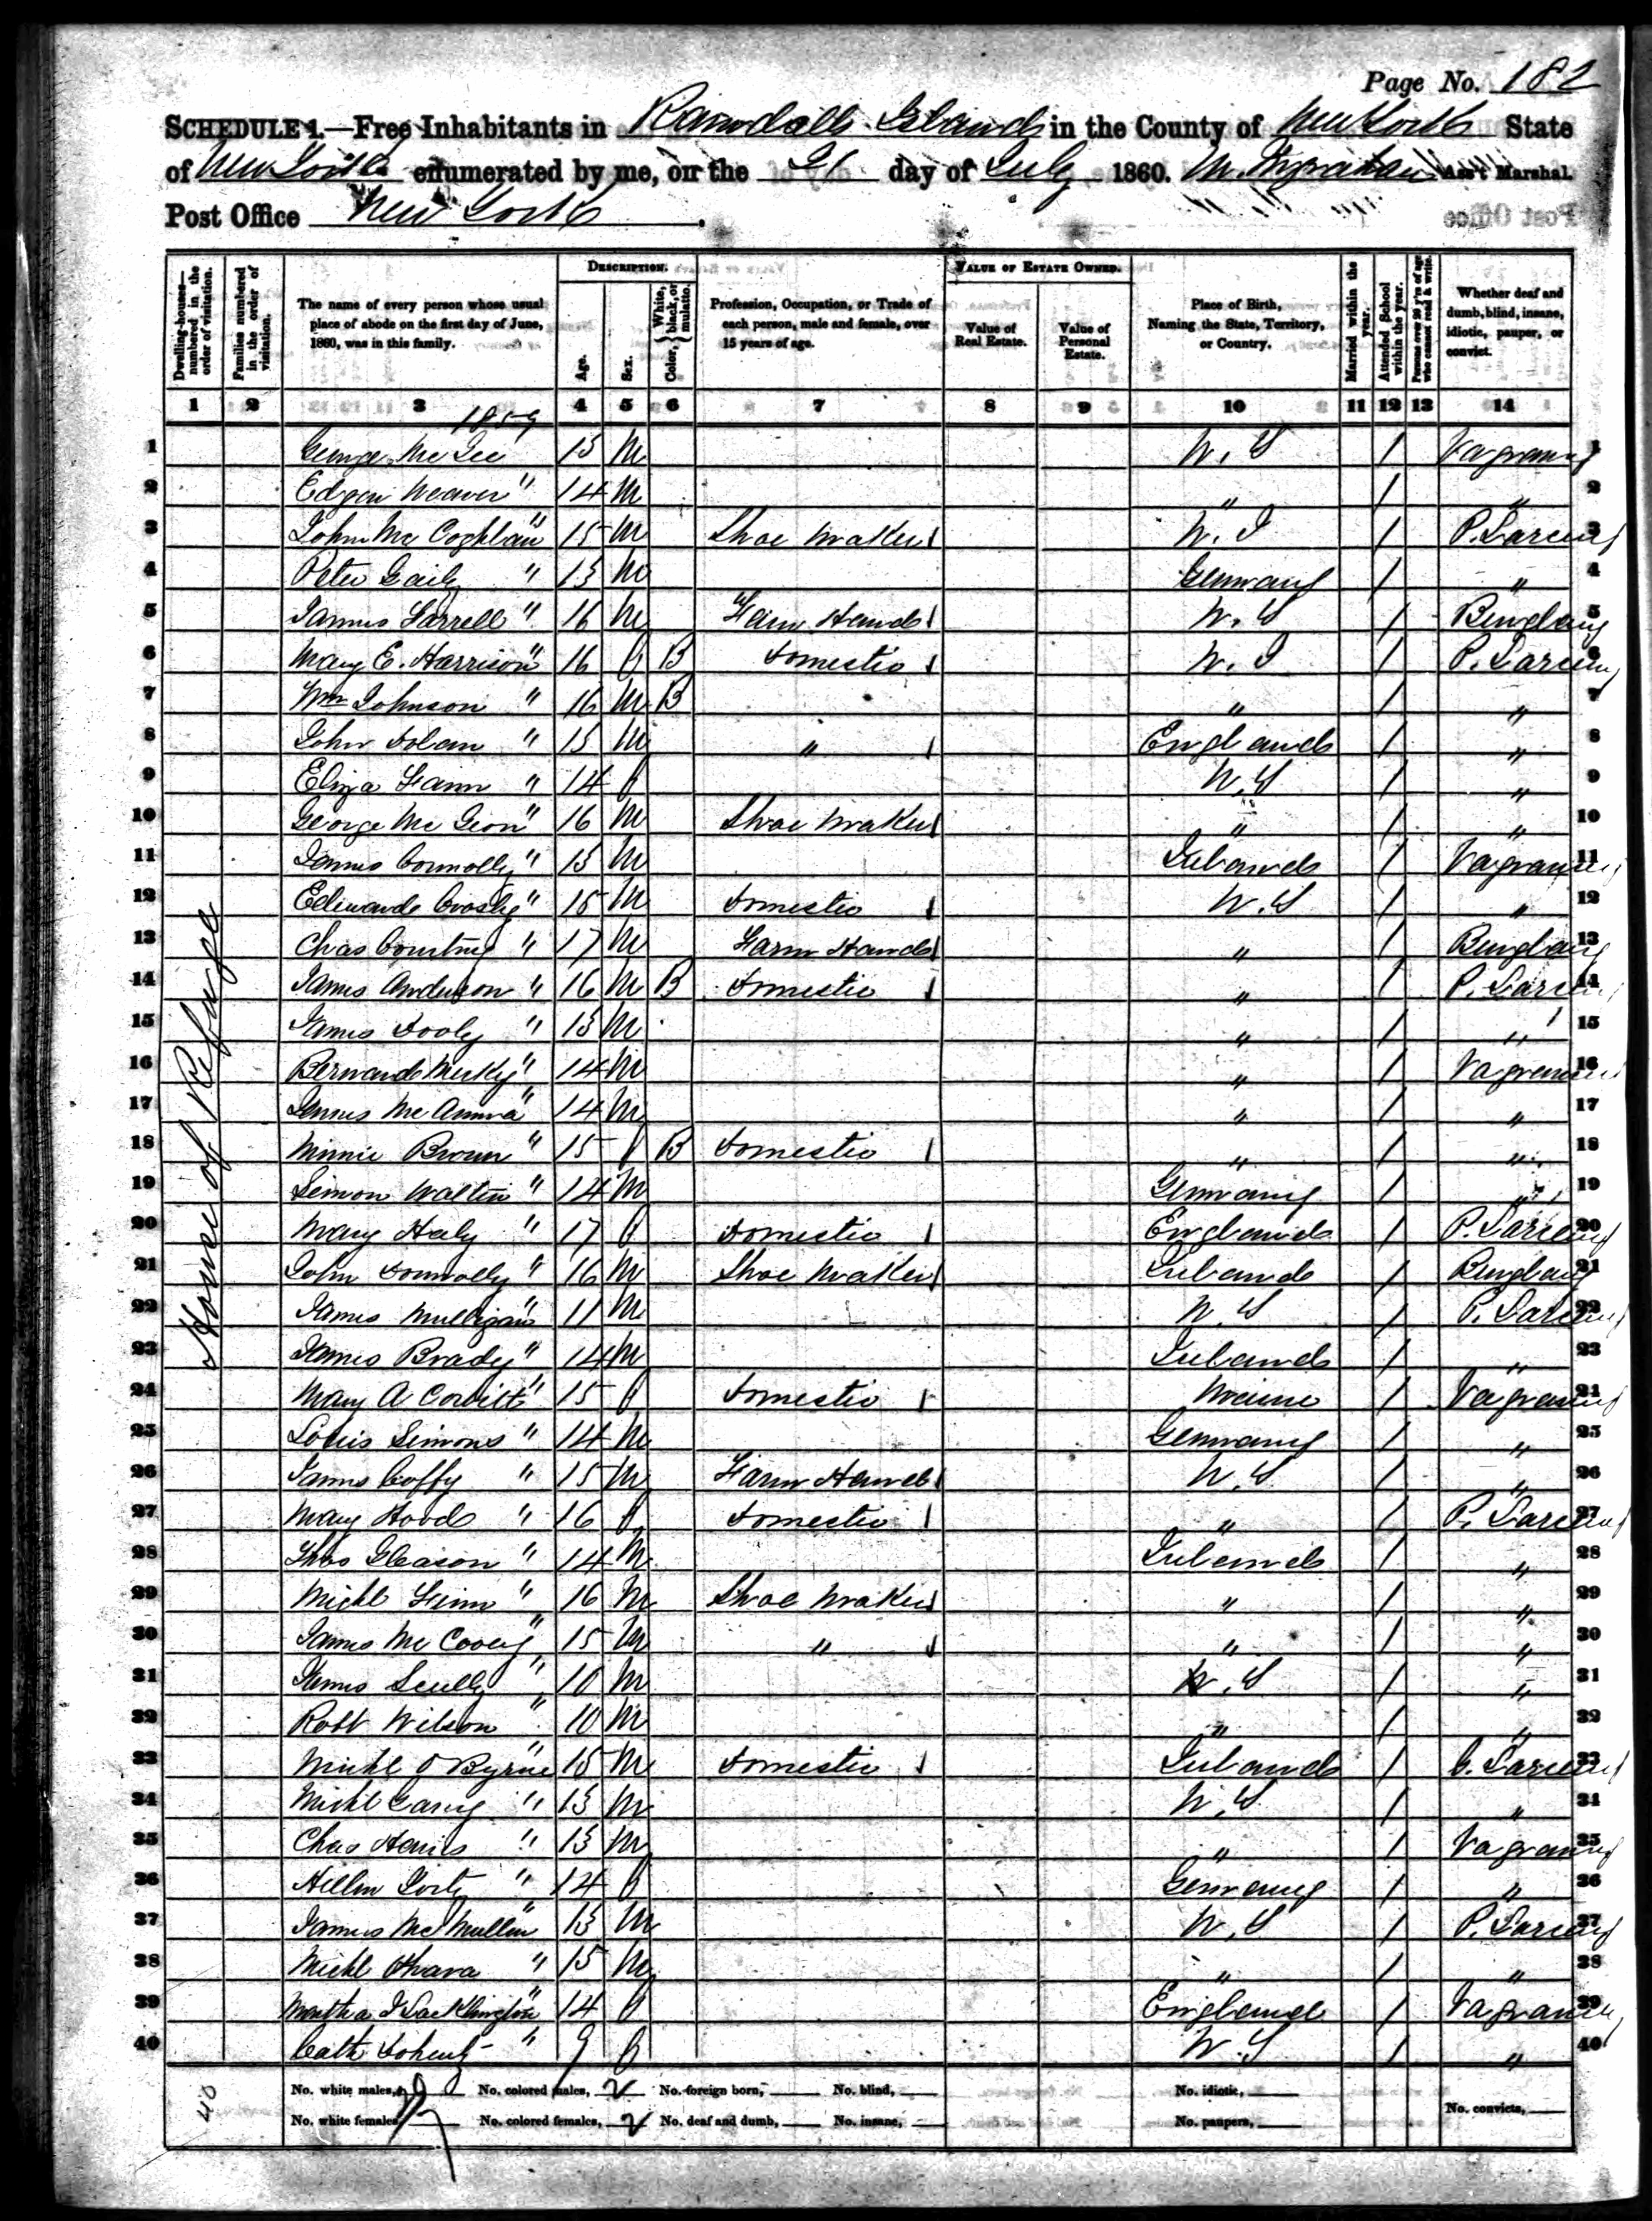 Page No. 182
SCHEDULE 1.—Free Inhabitants in Randalls Island in the County of New York State
of New York enumerated by me, on the 21 day of July 1860. M. Ingraham Ass't Marshal.
Post Office New York.
Dwelling-houses—numbered in the order of visitation.
Families numbered in the order of visitation.
The name of every person whose usual place of abode on the first day of June, 1860, was in this family.
DESCRIPTION.
Age.
Sex.
Color, White, black, or mulatto.
Profession, Occupation, or Trade of each person, male and female, over 15 years of age.
VALUE OF ESTATE OWNED.
Value of Real Estate.
Value of Personal Estate.
Place of Birth, Naming the State, Territory, or Country.
Married within the year.
Attended School within the year.
Persons over 20 y'rs of age who cannot read & write.
Whether deaf and dumb, blind, insane, idiotic, pauper, or convict.
1 2 3 4 5 6 7 8 9 10 11 12 13 14
1859
House of Refuge
1 George Mc Gee 15 M N. Y / Vagrancy 1
2 Edgar Weaver " 14 M " / " 2
3 John Mc Coghlan " 15 M Shoe Maker 1 N. J / P. Larceny 3
4 Peter " 13 M Germany / " 4
5 James Farrell " 16 M Farm Hand 1 N. Y / Burglary 5
6 Mary E. Harrison " 16 f B Domestic 1 N. J / P. Larceny 6
7 Wm Johnson " 16 M B " / " 7
8 John Dolan " 15 M " 1 England / " 8
9 Eliza " 14 f N. Y / " 9
10 George Mc Geon " 16 M Shoe Maker 1 " / " 10
11 James Connolly " 15 M Ireland / Vagrancy 11
12 Edward Crosby " 15 M Domestic 1 N. Y / " 12
13 Chas Courtney " 17 M Farm Hand 1 " / Burglary 13
14 James Anderson " 16 M B Domestic 1 " / P. Larceny 14
15 James Dooly " 13 M " / " 15
16 Bernard " 14 M " / Vagrancy 16
17 James " 14 M " / " 17
18 Minnie Brown " 15 f B Domestic 1 " / " 18
19 Simon Walter " 14 M Germany / " 19
20 Mary Haly " 17 f Domestic 1 England / P. Larceny 20
21 John Donnolly " 16 M Shoe Maker 1 Ireland / Burglary 21
22 James Mulligan " 11 M N. Y / P. Larceny 22
23 James Brady " 14 M Ireland / " 23
24 Mary A Corbitt " 15 f Domestic 1 Maine / Vagrancy 24
25 Louis Simons " 14 M Germany / " 25
26 James Coffy " 15 M Farm Hand 1 N. Y. / " 26
27 Mary Hood " 16 f Domestic 1 " / P. Larceny 27
28 Thos Gleason " 14 M Ireland / " 28
29 Michl Finn " 16 M Shoe Maker 1 " / " 29
30 James Mc Covey " 15 M " 1 " / " 30
31 James Scully " 10 M N. Y / " 31
32 Robt Wilson " 10 M " / " 32
33 Michl O Byrne " 15 M Domestic 1 Ireland / G. Larceny 33
34 Michl Carey " 13 M N. Y. / " 34
35 Chas Harris " 13 M " / Vagrancy 35
36 Hellen " 14 f Germany / " 36
37 James Mc Mullin " 13 M N. Y / P. Larceny 37
38 Michl Ohara " 15 M " / " 38
39 Martha J " 14 f England / Vagrancy 39
40 Cath Doherty " 9 f N. Y / " 40
40
No. white males, 29 No. colored males, 2 No. foreign born, No. blind, No. idiotic,
No. white females, 7 No. colored females, 2 No. deaf and dumb, No. insane, No. paupers, No. convicts,